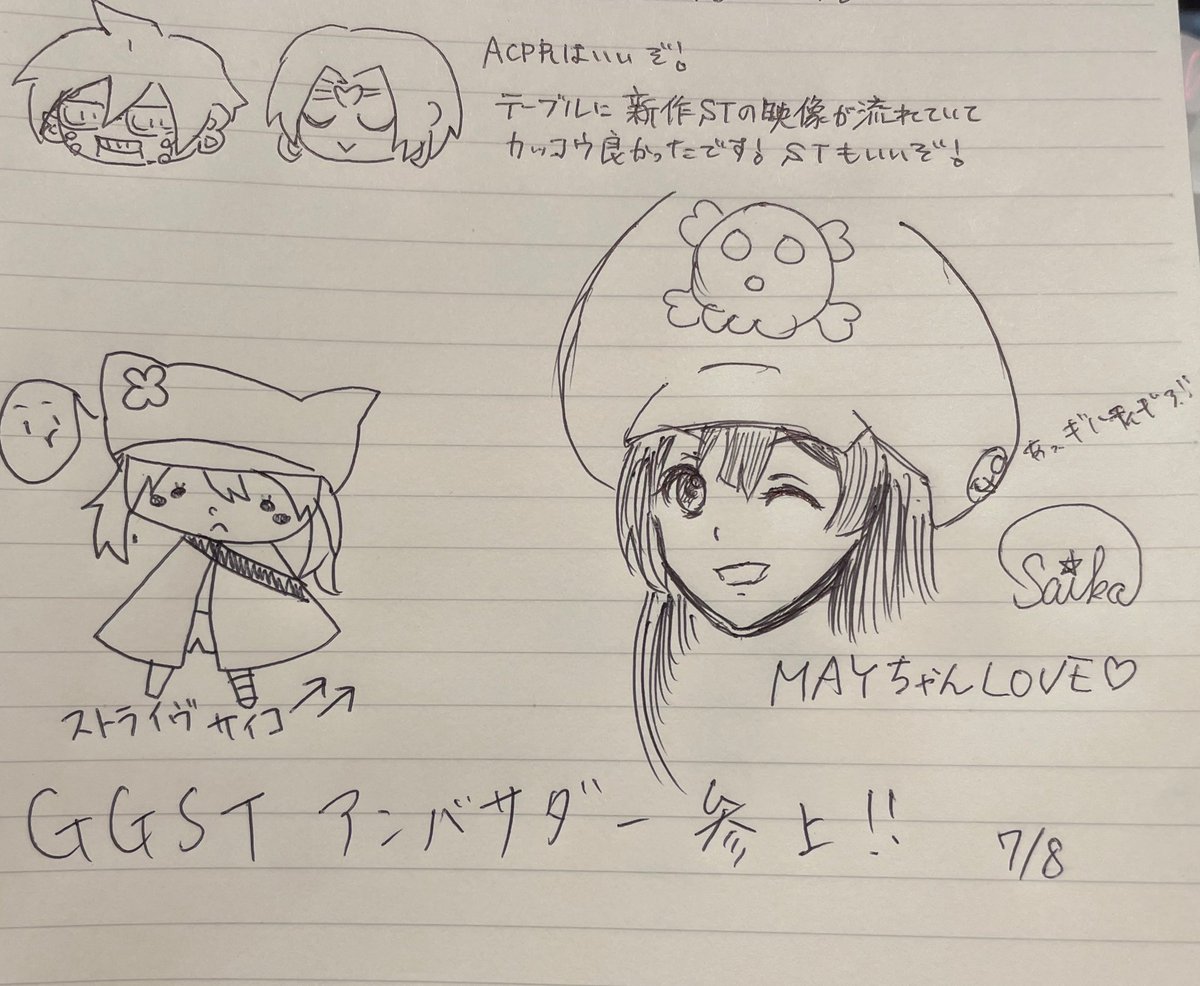 ACPRはいいぞ!
テーブルに新作STの映像が流れていて
カッコウ良かったです! STもいいぞ!
Saika
MAYちゃんLOVE♡
ストライヴサイコ↗↗
GGST アンバサダー参上!!
7/8